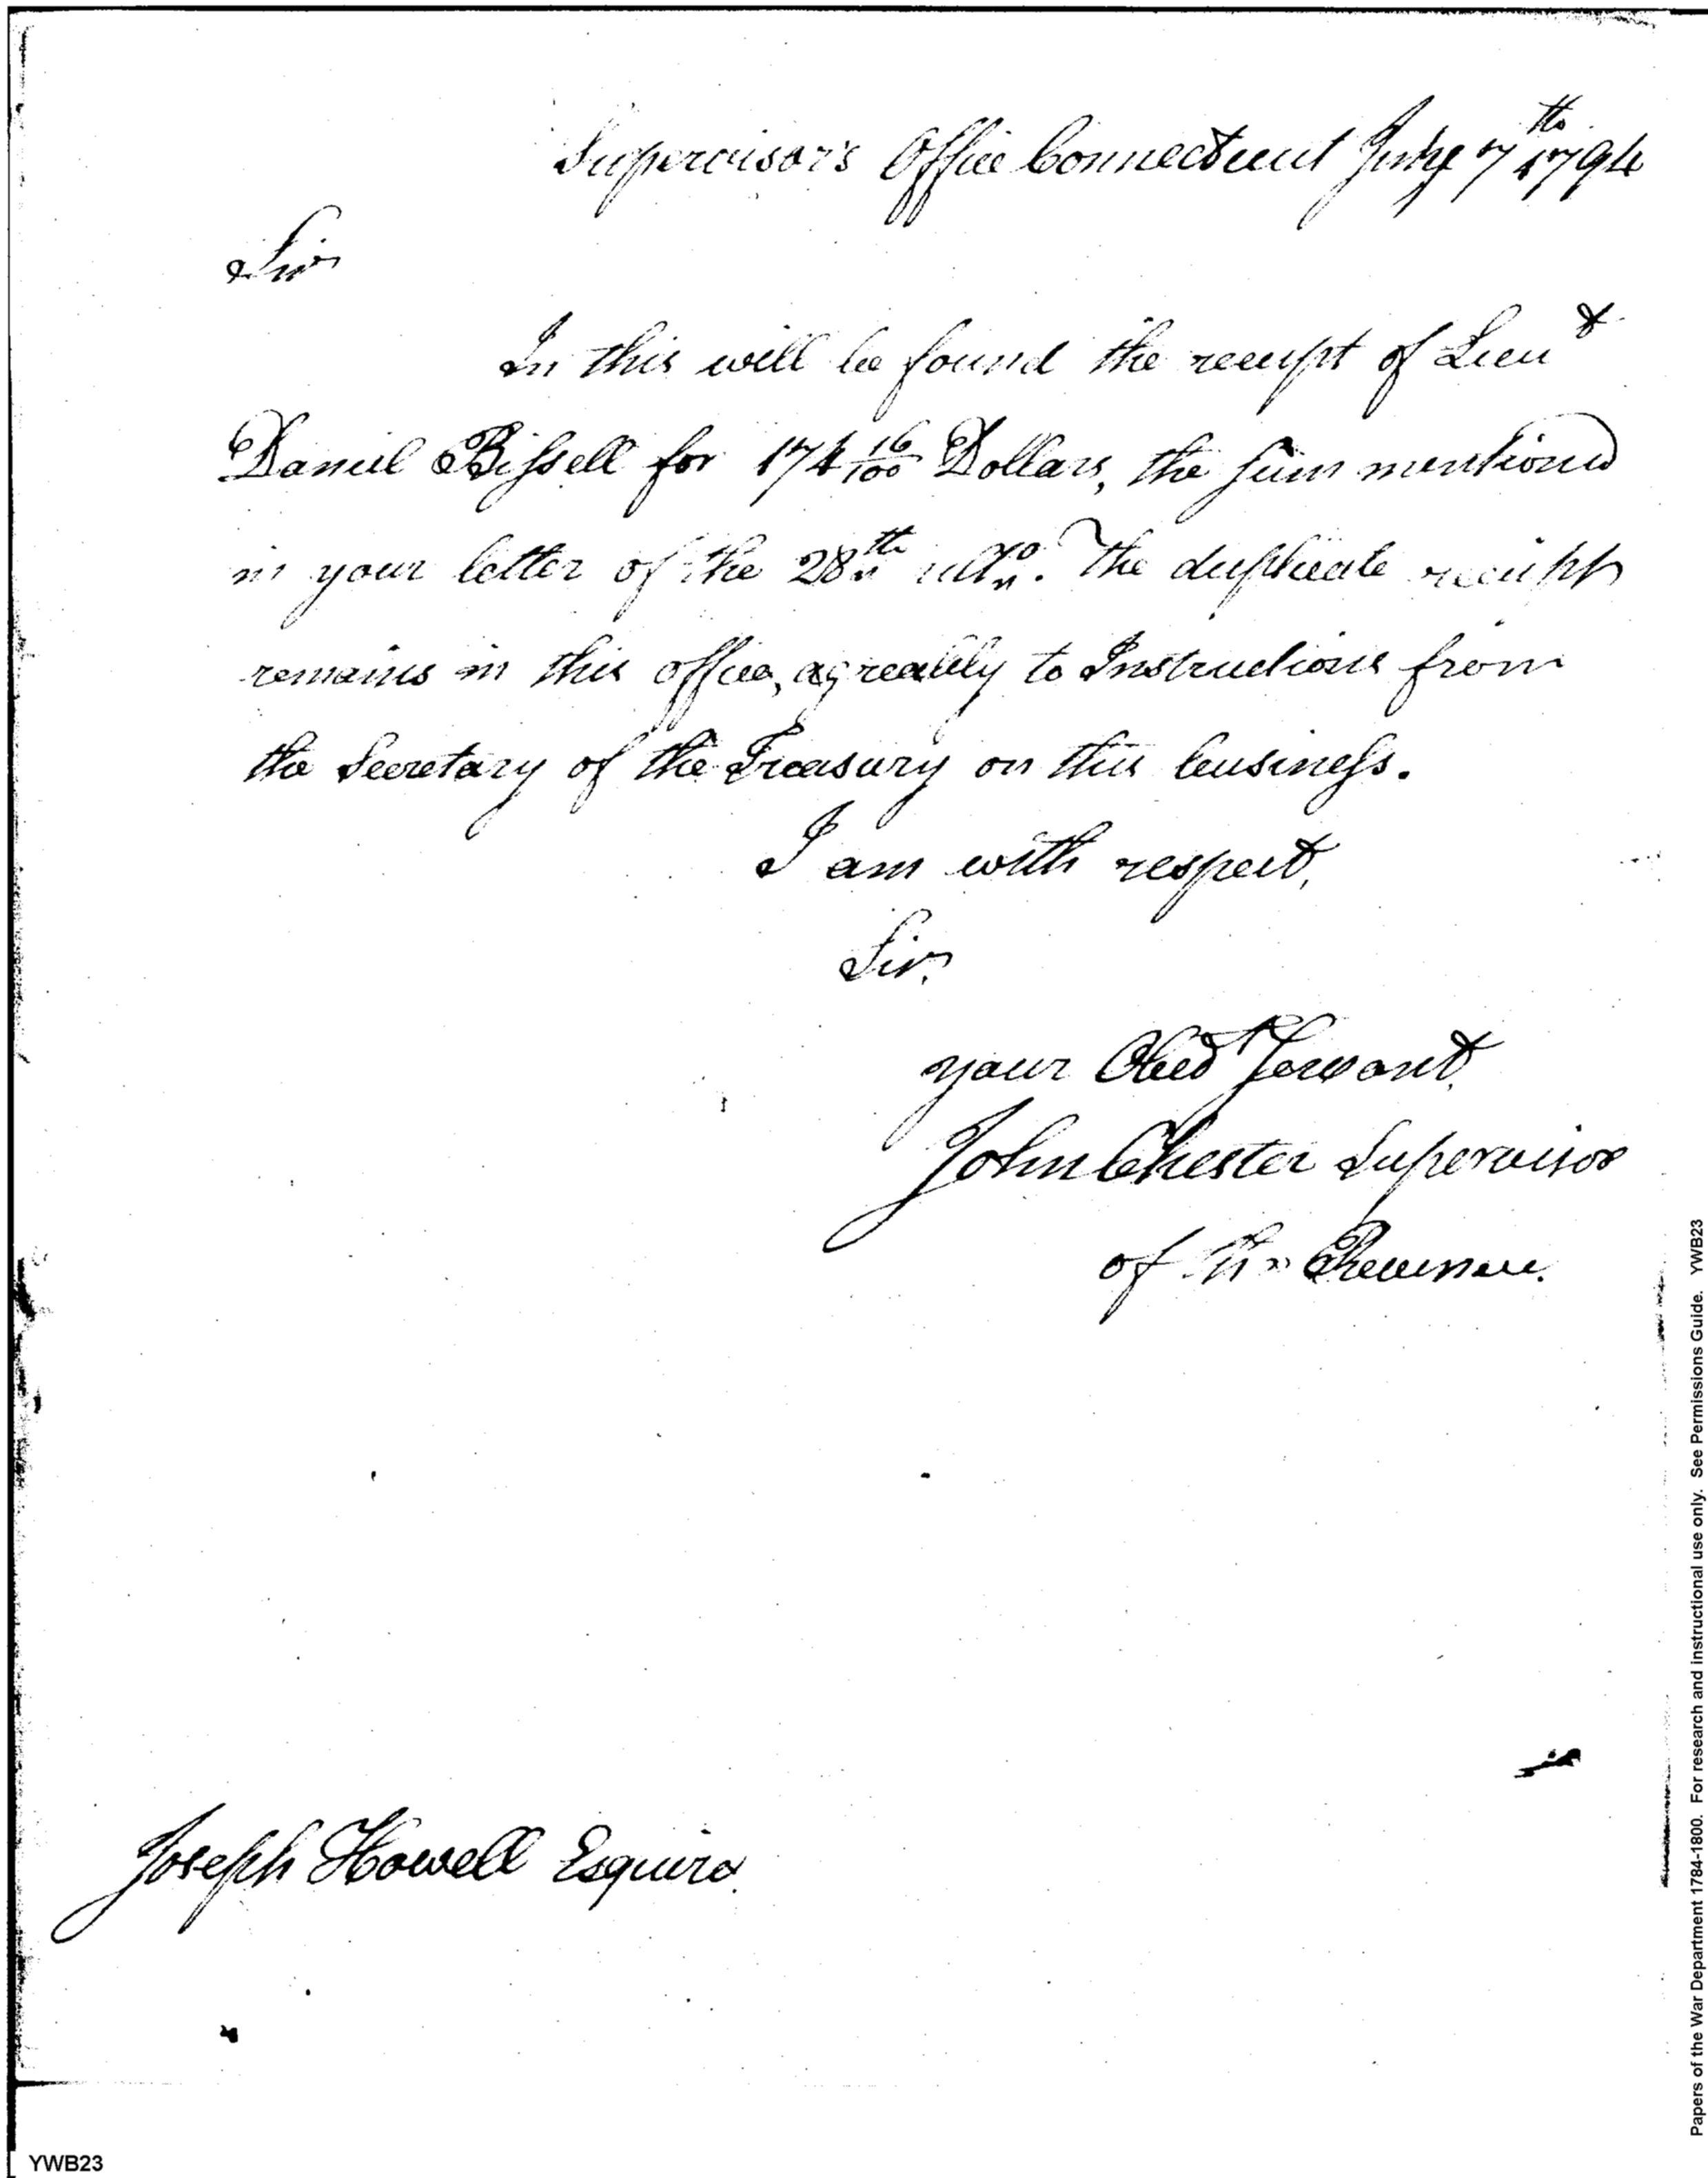 Supervisor's Office Connecticut July 7th 1794
Sir
In this will be found the receipt of Lieut
Daniel Bissell for 174 16/100 Dollars, the sum mentioned
in your letter of the 28th ulto. The duplicate receipt
remains in this office, agreably to Instructions from
the Secretary of the Treasury on this business.
I am with respect,
Sir.
your Obedt Servant.
John Chester Supervisor
of the Revenue.
Joseph Howell Esquire.
YWB23
Papers of the War Department 1784-1800. For research and instructional use only. See Permissions Guide. YWB23